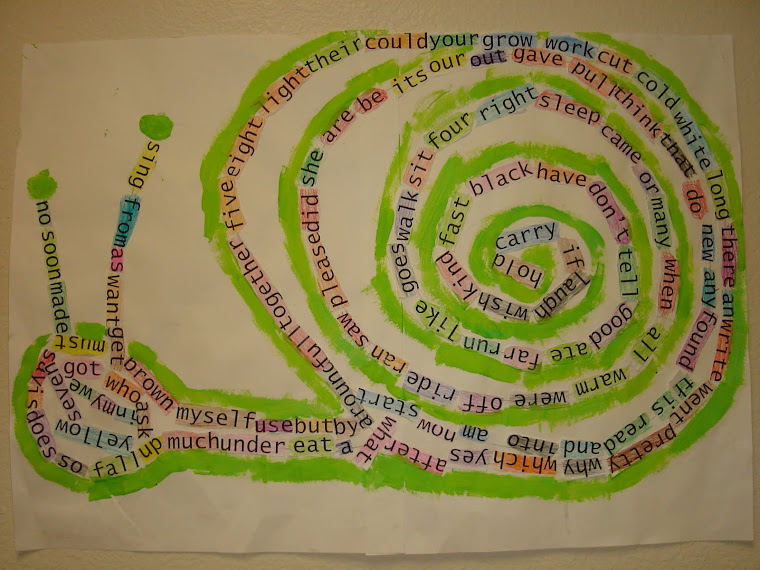 no soon made must
sing from as want get
got who ask
in my we
yellow
seven
say is does so fall up
brown myself use but by around full together five eight light their could your grow work cut cold white long there an write went pretty
much under eat a
what after yes which why
start now am into and read this found any new do that think pull gave out our its be are she did pleased saw ran ride off were warm all when many or came sleep right four sit walk goes like run far ate good tell don't have black fast kind wish laugh if carry hold